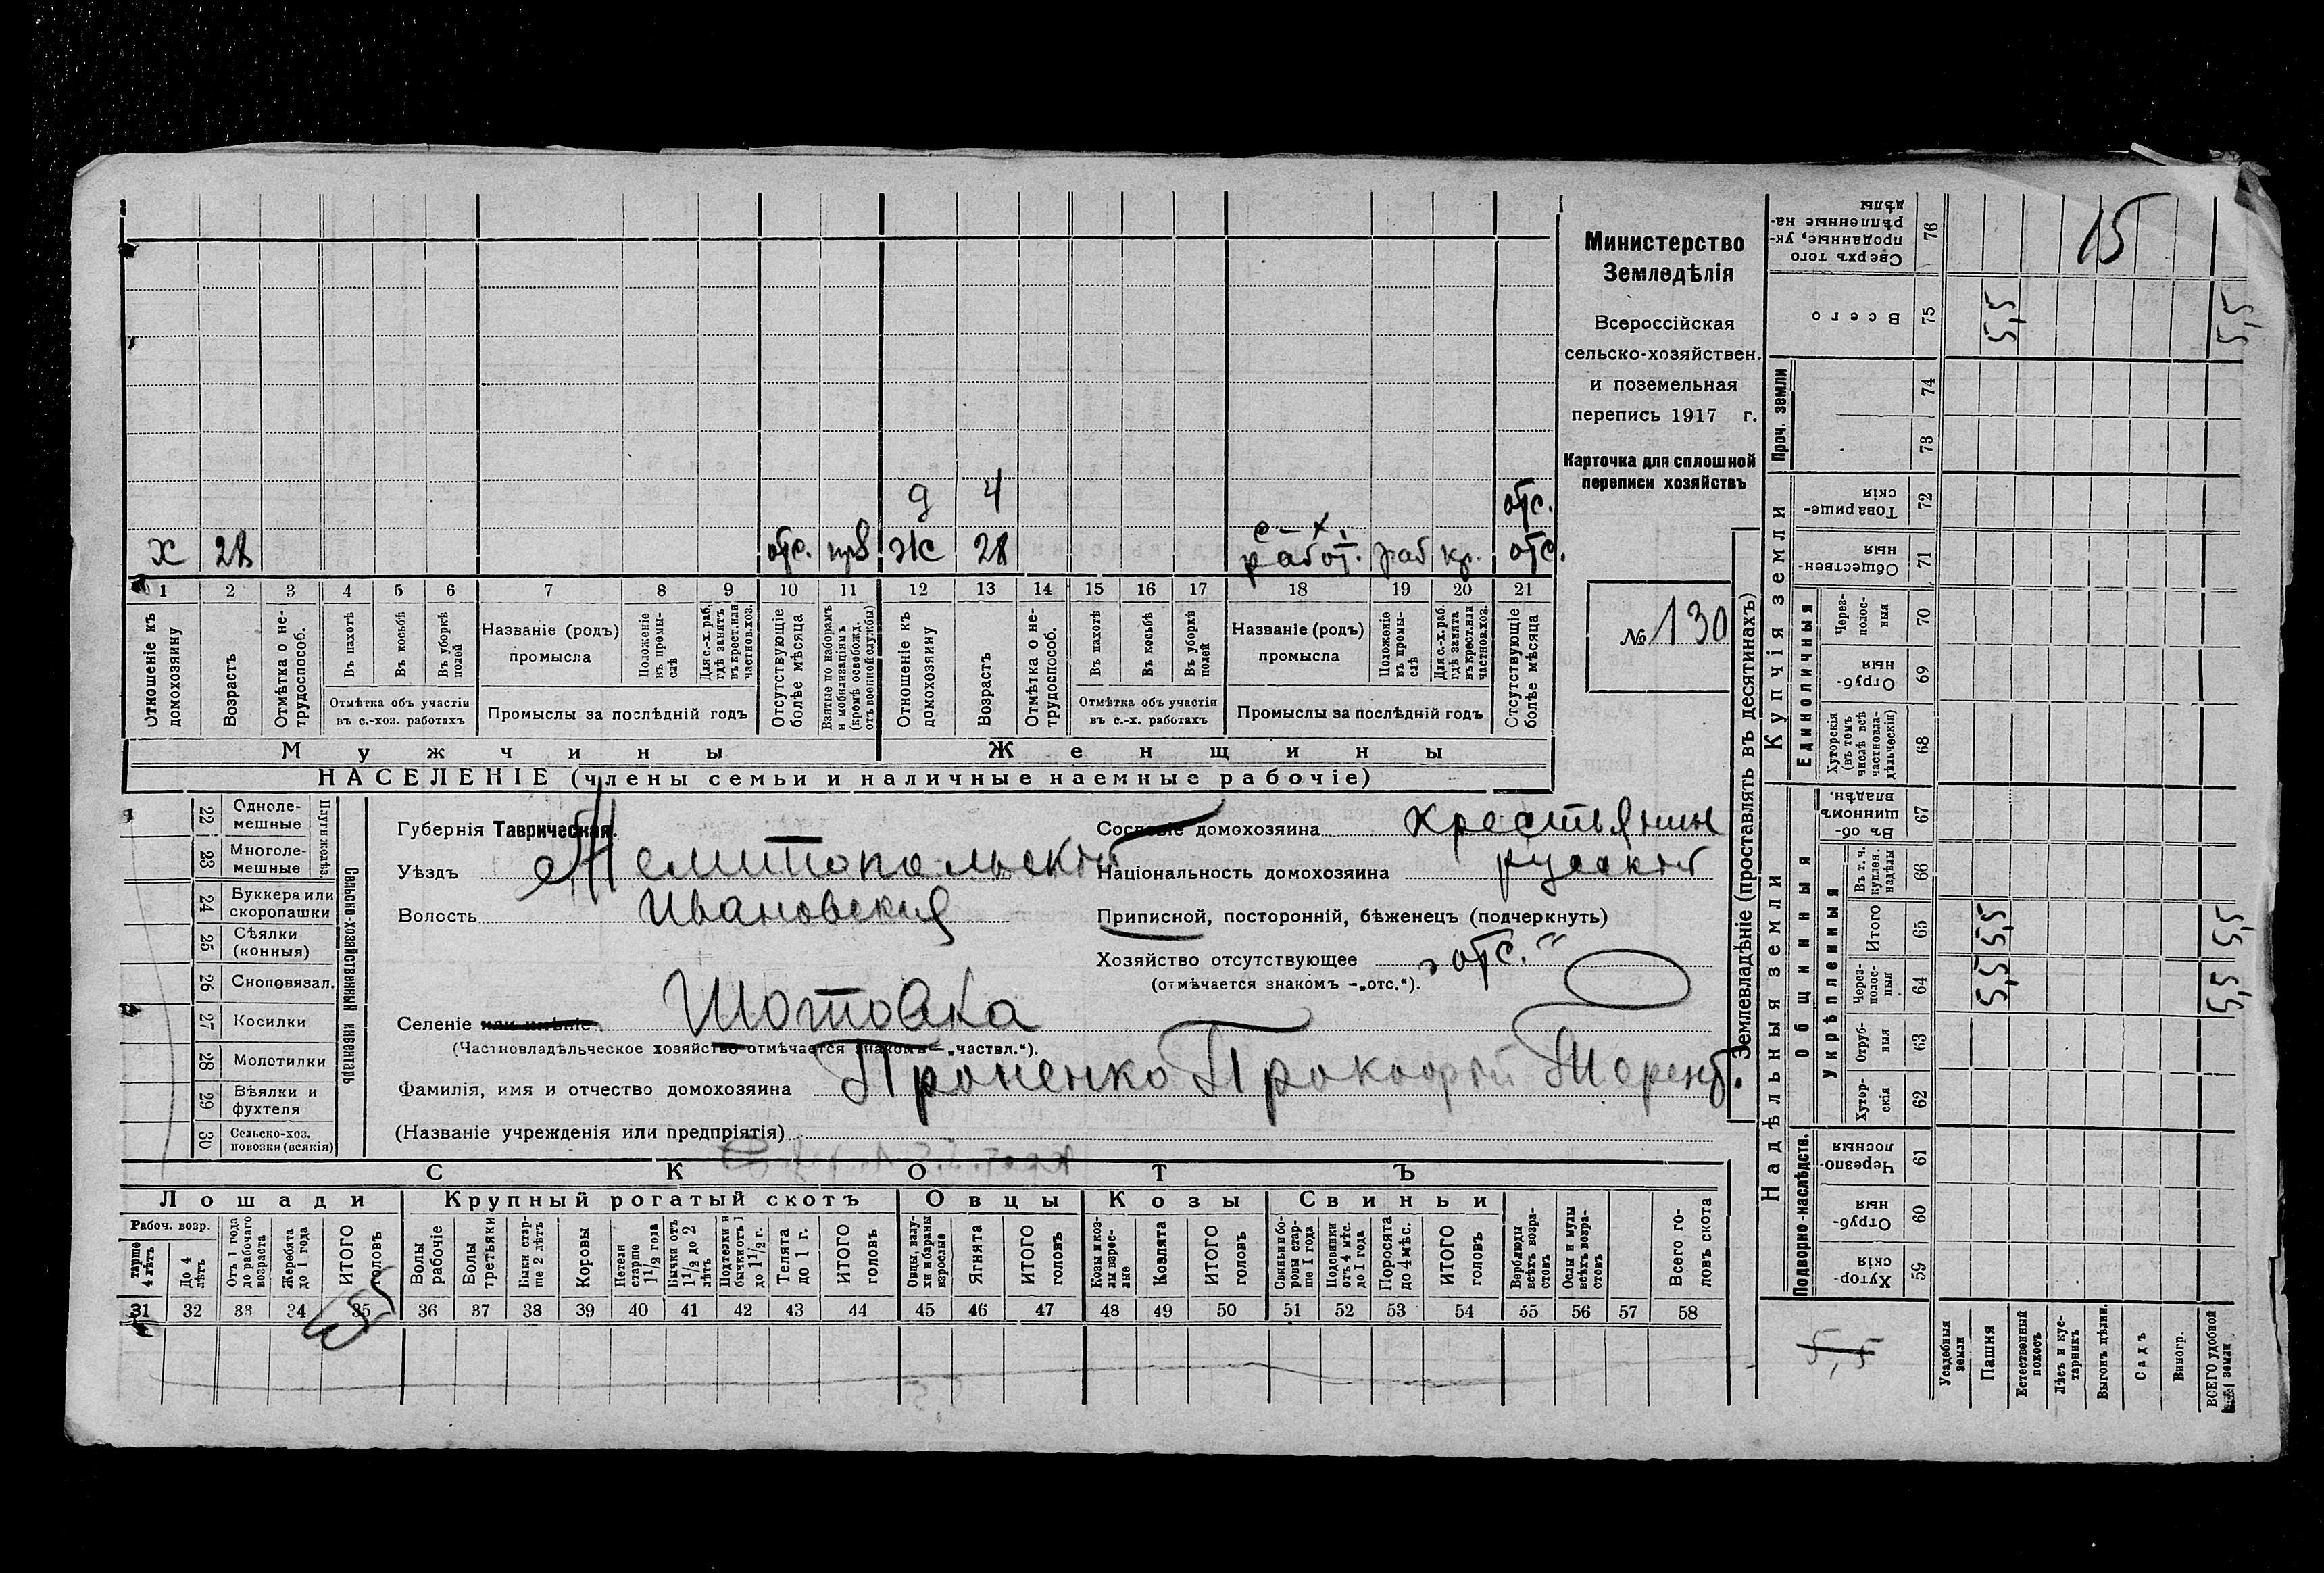 Министерство
Земледѣлія
Всероссійская
сельско-хозяйствен.
и поземельная
перепись 1917 г.
Карточка для сплошной
переписи хозяйствъ
№ 130
д 4 отс.
с-х.
х 28 отс. ж 28 работ. раб кр. отс.
1 2 3 4 5 6 7 8 9 10 11 12 13 14 15 16 17 18 19 20 21
Отношеніе къ домохозяину
Возрастъ
Отмѣтка о не-трудоспособ.
Въ пахотѣ
Въ косьбѣ
Въ уборкѣ полей
Отмѣтка объ участіи
въ с.-хоз. работахъ
Названіе (родъ)
промысла
Положеніе въ промы-слѣ
Для с.-х. раб. гдѣ занятъ въ крест. или частнов. хоз.
Промыслы за послѣдній годъ
Отсутствующіе болѣе мѣсяца
Взятые по наборамъ и мобилизаціямъ (кромѣ освобожд. отъ военной службы)
Отношеніе къ домохозяину
Возрастъ
Отмѣтка о не-трудоспособ.
Въ пахотѣ
Въ косьбѣ
Въ уборкѣ полей
Отмѣтка объ участіи
въ с.-х. работахъ
Названіе (родъ)
промысла
Положеніе въ промы-слѣ
Для с.-х. раб. гдѣ занята въ крест. или частнов. хоз.
Промыслы за послѣдній годъ
Отсутствующіе болѣе мѣсяца
Мужчины Женщины
НАСЕЛЕНІЕ (члены семьи и наличные наемные рабочіе)
Губернія Таврическая.
Уѣздъ Мелитопольскій
Волость Ивановская
Селеніе или имѣніе Шотовка
(Частновладѣльческое хозяйство отмѣчается знакомъ – „частвл.“).
Сословіе домохозяина крестьянин
Національность домохозяина русскій
Приписной, посторонній, бѣженецъ (подчеркнуть)
Хозяйство отсутствующее „отс.“
(отмѣчается знакомъ –„отс.“).
Фамилія, имя и отчество домохозяина Проненко Прокофій Терент.
(Названіе учрежденія или предпріятія)
Сельско-хозяйственный инвентарь
Плуги желѣз.
22 Одноле-мешные
23 Многоле-мешные
24 Буккера или скоропашки
25 Сѣялки (конныя)
26 Сноповязал.
27 Косилки
28 Молотилки
29 Вѣялки и фухтеля
30 Сельско-хоз. повозки (всякія)
СКОТЪ
Лошади Крупный рогатый скотъ Овцы Козы Свиньи
Рабоч. возр.
тарше 4 лѣтъ
До 4 лѣтъ
Отъ 1 года до рабочаго возраста
Жеребята до 1 года
ИТОГО головъ
Волы рабочіе
Волы третьяки
Быки стар-ше 2 лѣтъ
Коровы
Нетели старше 1½ года
Бычки отъ 1½ до 2 лѣтъ
Подтелки и бычки отъ 1 до 1½ г.
Телята до 1 г.
ИТОГО головъ
Овцы, валу-хи и бараны взрослые
Ягнята
ИТОГО головъ
Козы и коз-лы взрос-лые
Козлята
ИТОГО головъ
Свиньи и бо-ровы стар-ше 1 года
Подсвинки отъ 4 мѣс. до 1 года
Поросята до 4 мѣс.
ИТОГО головъ
Верблюды всѣхъ возра-стовъ
Ослы и мулы всѣхъ возра-стовъ
Всего го-ловъ скота
31 32 33 34 35 36 37 38 39 40 41 42 43 44 45 46 47 48 49 50 51 52 53 54 55 56 57 58
Землевладѣніе (проставлять въ десятинахъ)
Купчія земли
Надѣльныя земли
Проч. земли
Единоличныя
Общинныя
Укрѣпленныя
Подворно-наслѣдств.
76 Сверхъ того проданные, ук-рѣпленные на-дѣлы 15
75 Всего 5,5 5,5
74
73
72 Товарище-скія
71 Обществен-ныя
70 Черезполос-ныя
69 Отруб-ныя
68 Хуторскія (въ томъ числѣ всѣ частновла-дѣльческія)
67 Въ об-щинномъ владѣн.
66 Въ т. ч. куплен. надѣлы
65 Итого 5,5 5,5
64 Черезполос-ныя 5,5 5,5
63 Отруб-ныя
62 Хутор-скія
61 Черезпо-лосныя
60 Отруб-ныя
59 Хутор-скія
5,5
Усадебныя земли
Пашня
Естественный покосъ
Лѣсъ и кус-тарникъ
Выгонъ цѣлин.
Садъ
Виногр.
ВСЕГО удобной земли